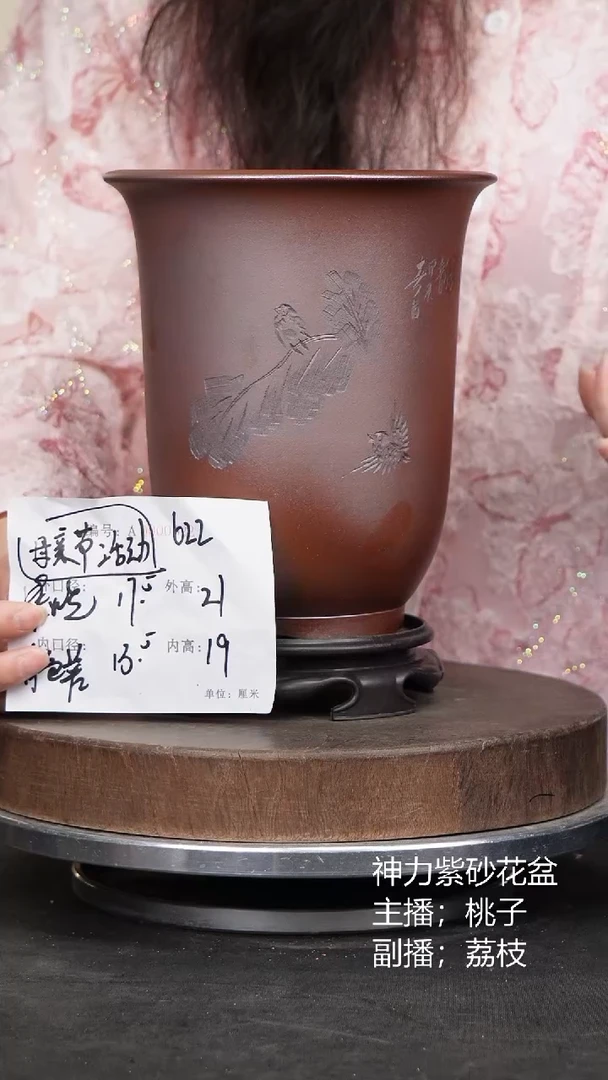 编号：A 622
母亲节活动
外口径： 17.5 外高： 21
内口径： 13.5 内高： 19
单位：厘米
神力紫砂花盆
主播；桃子
副播；荔枝